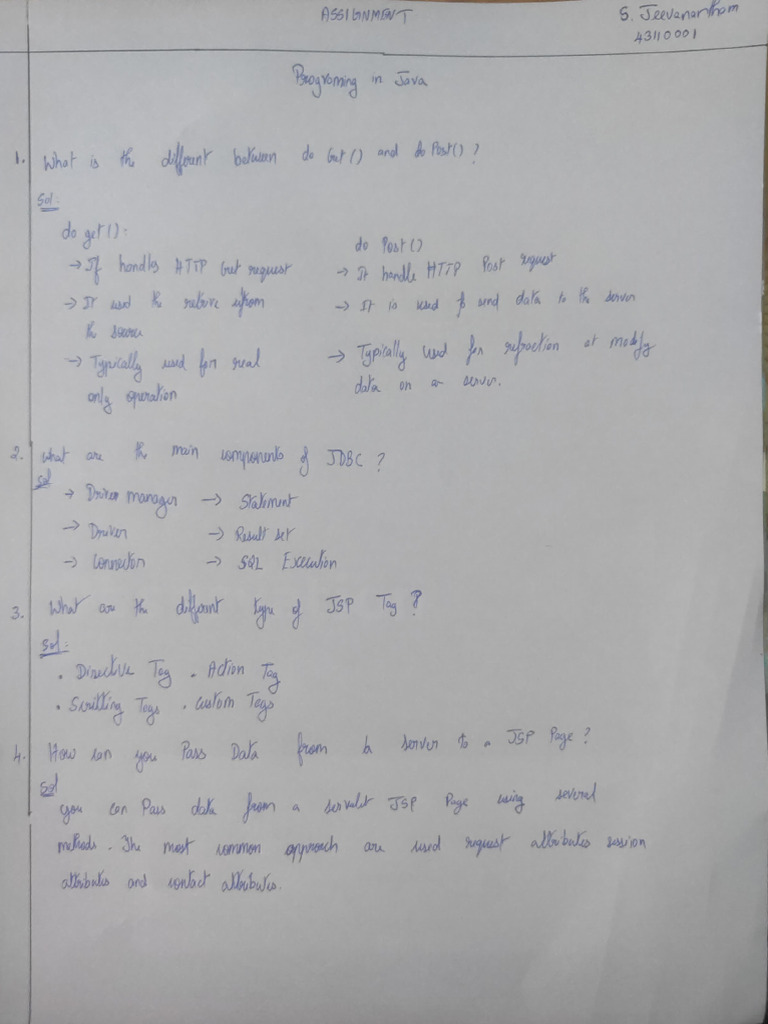 ASSIGNMENT
S. Jeevanantham
43110001
Programing in Java
1. What is the different between do Get() and do Post() ?
Sol:
do get().
→ If handles HTTP Get request
→ It used the retrive
the source
→ Typically used for real
only operation
do Post()
→ It handle HTTP Post request
→ It is used to send data to the server
→ Typically used for refraction at modify
data on a server.
2. What are the main components of JDBC ?
Sol
→ Driver manager → Statement
→ Driver → Result set
→ Connection → SQL Execution
3. What are the different type of JSP Tag ?
Sol:
• Directive Tag • Action Tag
• Scritting Tags • Custom Tags
4. How can you Pass Data from a server to a JSP Page ?
Sol
you can Pass data from a servalet JSP Page using several
methods. The most common approach are used request attributes session
attributes and contact attributes.